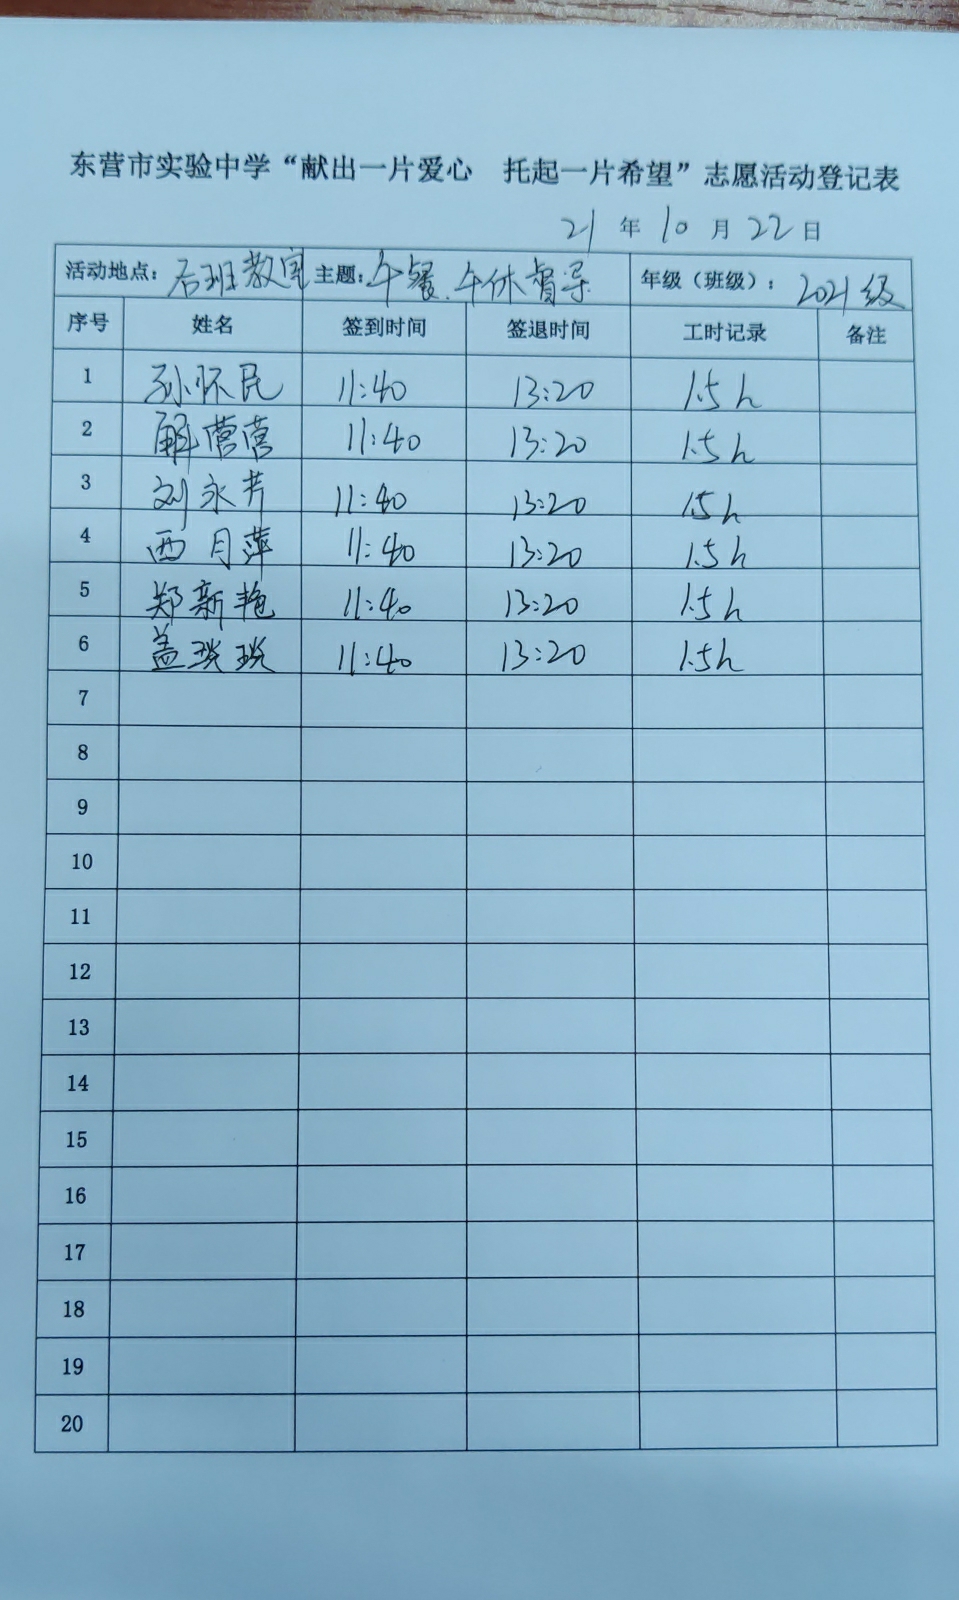 东营市实验中学“献出一片爱心 托起一片希望”志愿活动登记表
21 年 10 月 22 日
活动地点: 各班教室 主题: 午餐、午休督导 年级（班级）: 2021级
序号 姓名 签到时间 签退时间 工时记录 备注
1 孙怀民 11:40 13:20 1.5h
2 解营营 11:40 13:20 1.5h
3 刘永芳 11:40 13:20 1.5h
4 西月萍 11:40 13:20 1.5h
5 郑新艳 11:40 13:20 1.5h
6 盖琰琰 11:40 13:20 1.5h
7
8
9
10
11
12
13
14
15
16
17
18
19
20